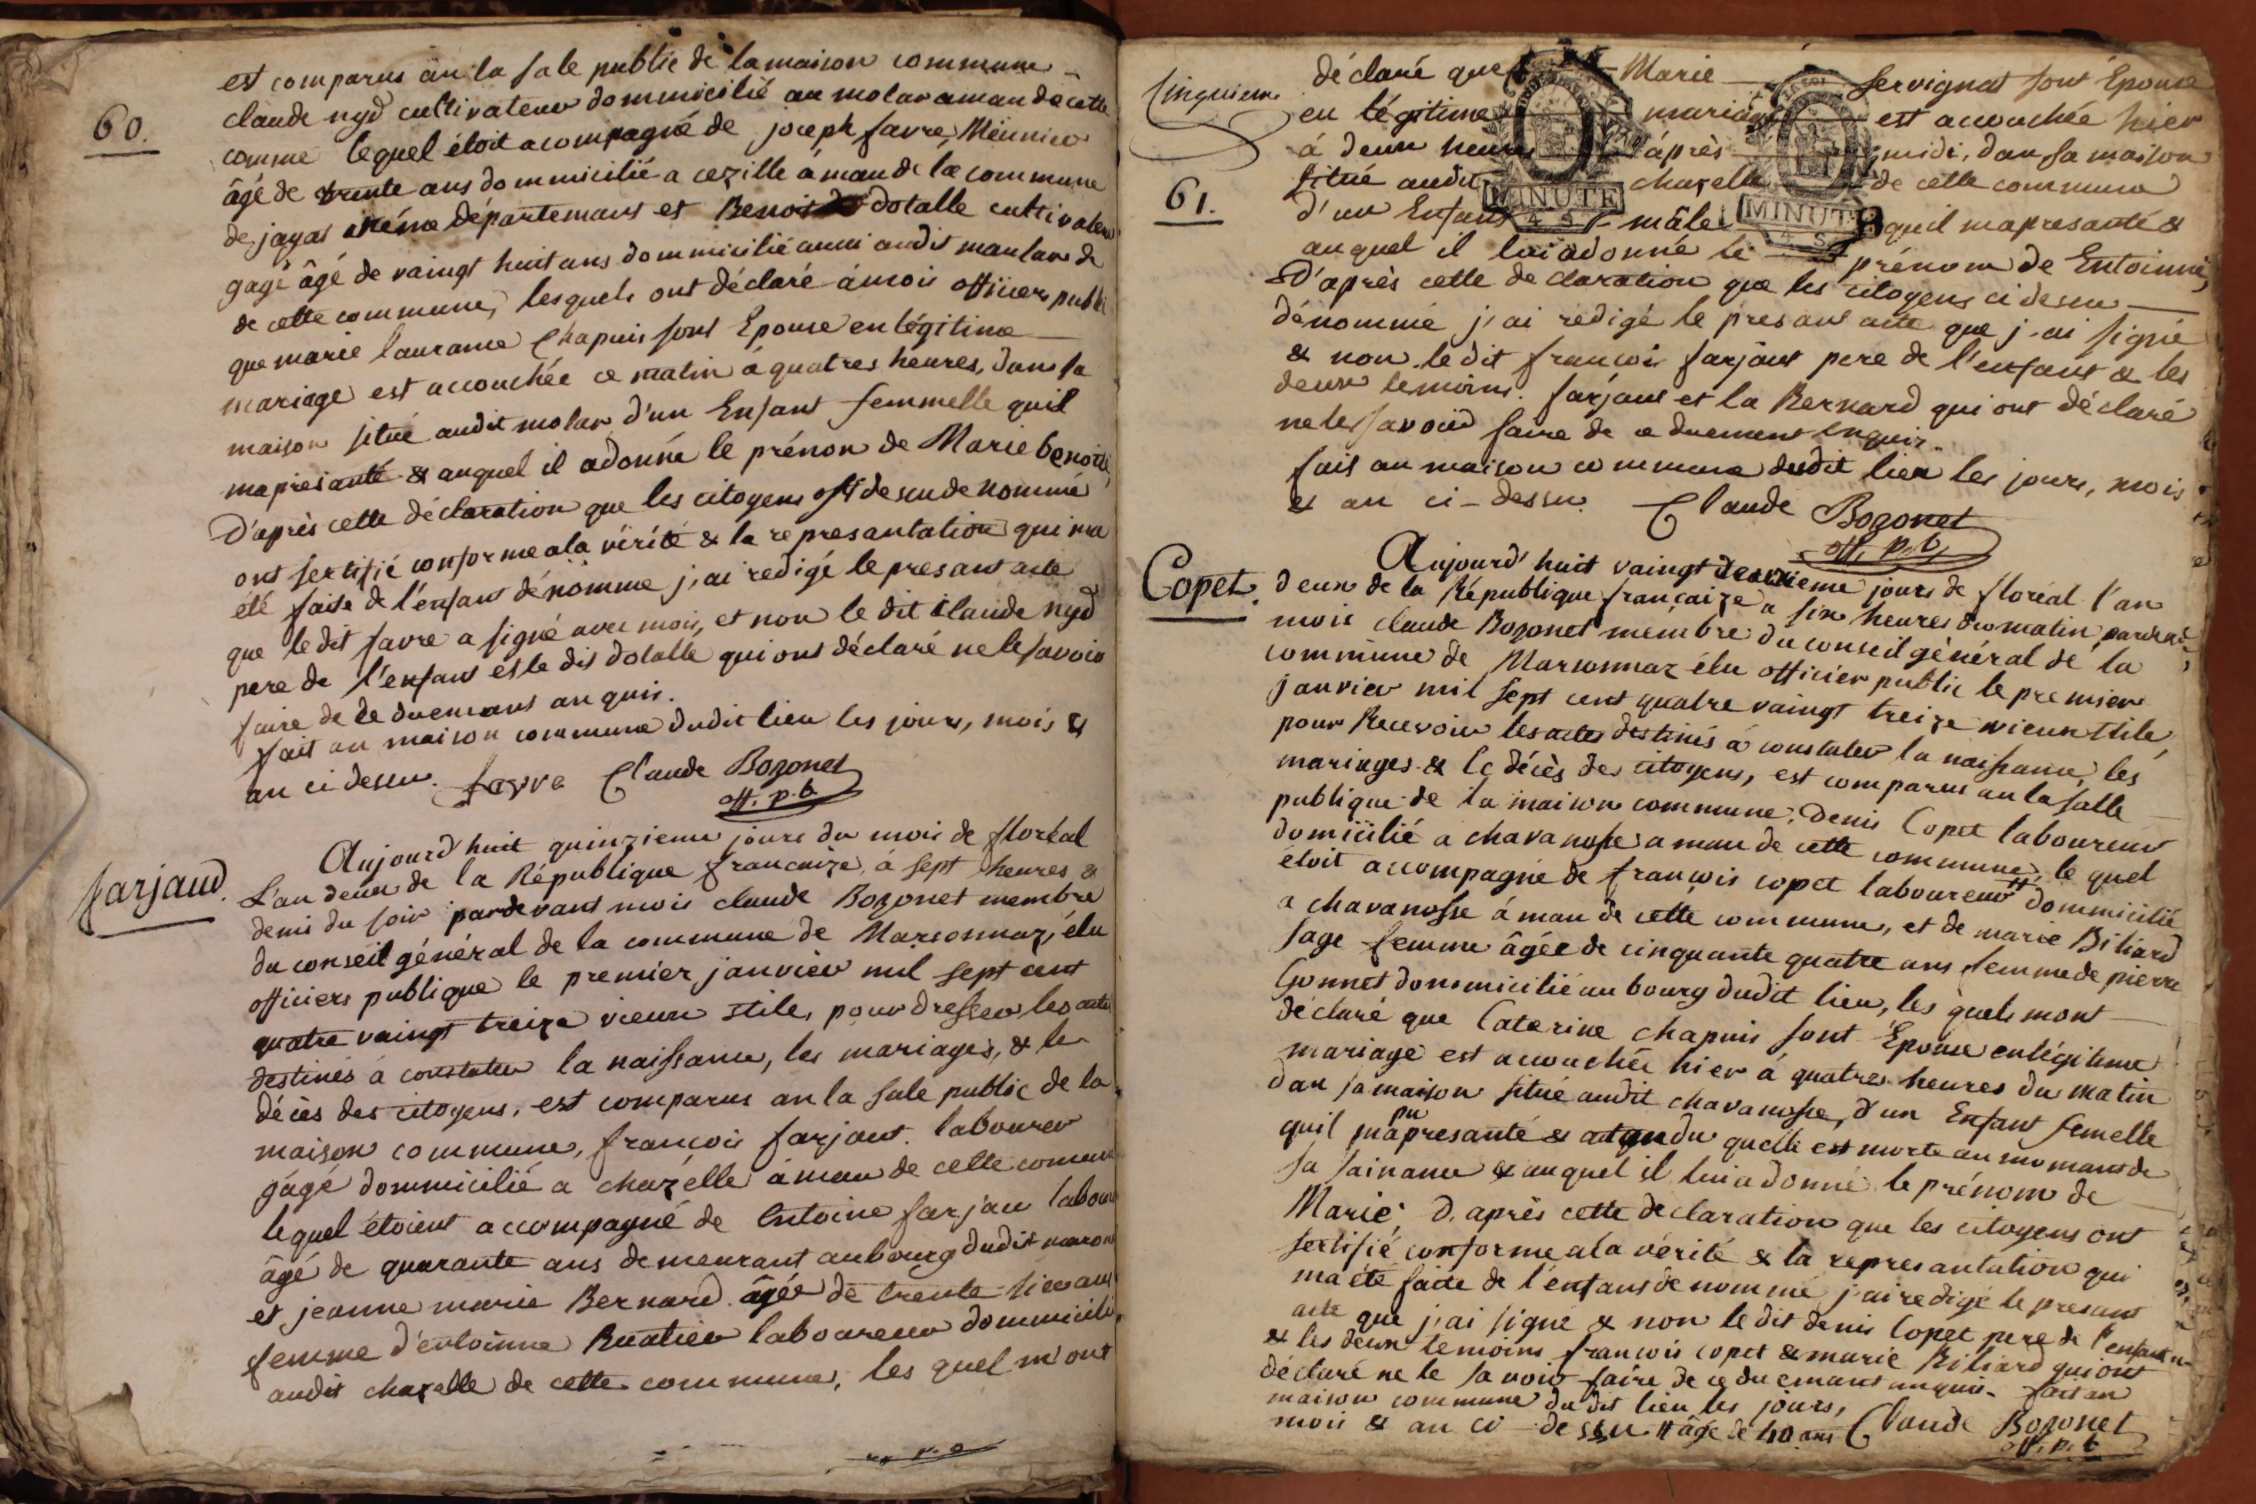 60.
est comparus an la sale public de la maison commune
claude nyd cultivateur dommicilié au molar aman de cette
comme lequel étoit acompagné de joseph favre, Meunier
âgé de trente ans dommicilié a cezille á man de la commune
de jayat même département et Benoit dotalle cultivateur
gagé âgé de vaingt huit ans dommicilié aussi audit maular de
de cette commune, lesquels ont déclaré á mois officier public
que marie laurance Chapuis sont Epouse en légitime
mariage est accouchée ce matin á quatres heures, dans sa
maison situé audit molar d'un Enfant femmelle quil
mapresanté & auquel il adonné le prénon de Marie benoite
D'après cette déclaration que les citoyens desu de nommé
ont sertifié conforme ala vérité & la represantation qui ma
été faite de l'enfant dénomme j'ai redigé le presant acte
que le dit favre a signé avec mois, et non le dit Claude nyd
pere de l'enfant et le dit dotalle qui ont déclaré ne le savoir
faire de ce duemant anquis.
fait an maison commune dudit lieu les jours, mois &
an ci desu. favre Claude Bozonet
off. p. b.
farjaud.
Aujourd'huit quinzieme jours du mois de floréal
L'an deux de la République françaize, á sept heures &
demi du soir pardevant mois claude Bozonet membre
du conseil général de la commune de Marsonnaz, élu
officiers publique le premier janvier mil sept cent
quatre vaingt treize vieux stile, pour dresser les actes
destinés á constater la naissance, les mariages, & le
décès des citoyens, est comparus an la sale public de la
maison commune, françois farjaut. laboureur
gagé dommicilié a chazelle á man de cette commune
lequel étoient accompagné de Entoine farjau labour
âgé de quarante ans demeurant aubourg dudit marson
et jeanne marie Bernard âgée de trente six ans
femme d'entoinne Ruatier laboureur dommicilié
audit chazelle de cette commune, les quel m'ont
Cinquieme
61.
déclaré que Marie Servignat sont Epouse
en légitime mariage est accouchée hier
á deux heures áprès midi, dan sa maison
situé audit chazelle de cette commune
d'un Enfant mâle quil mapresanté &
auquel il lui adonné le prénom de Entoinne,
D'après cette declaration que les citoyens ci desu
dénommé j'ai redigé le presant acte que j'ai signé
& non le dit françois farjaut pere de l'enfant & les
deux temoins. farjaut et la Bernard qui ont déclaré
ne le savoir faire de ce duement enquis.
fait an maison commune dudit lieu les jours, mois
& an ci-dessu. Claude Bozonet
off. p. b.
MINUTE
4 S
MINUTE
4 S
Copet.
Aujourd'huit vaingt deuxieme jours de floréal l'an
deux de la République françaize a six heures du matin pardevant
mois claude Bozonet membre du conseil général de la
commune de Marsonnaz élu officier public le premier
janvier mil sept cent quatre vaingt treize vieux stile,
pour Recevoir les actes destinés á constater la naissance, les
mariages & le décès des citoyens, est comparus an la salle
publique de la maison commune, Denis Copet laboureur
domicilié a chavanosse a man de cette commune, le quel
étoit accompagné de françois copet laboureur # dommicilié
a chavanosse á man de cette commune, et de marie Biliard
sage femme âgée de cinquante quatre ans femme de pierre
Gonnet dommicilié au bourg dudit lieu, les quels mont
déclaré que Caterine chapuis sont Epouse en légitime
mariage est accouchée hier á quatres heures du matin
dan sa maison situé audit chavanosse, d'un Enfant femelle
quil mapresanté & atandu quelle est morte au momant de
sa sainance & auquel il lui adonné le prénom de
Marie, D'après cette declaration que les citoyens ont
sertifié conforme ala vérité & la represantation qui
ma été faite de l'enfant de nommé j'ai redigé le presant
acte que j'ai signé & non le dit denis Copet pere de l'enfant
& les deux temoins françois copet & marie Biliard qui ont
déclaré ne le savoir faire de ce duemant anquis. fait an
maison commune du dit lieu les jours,
mois & an ci-dessu. # âgé de 40 ans Claude Bozonet
off. p. b.